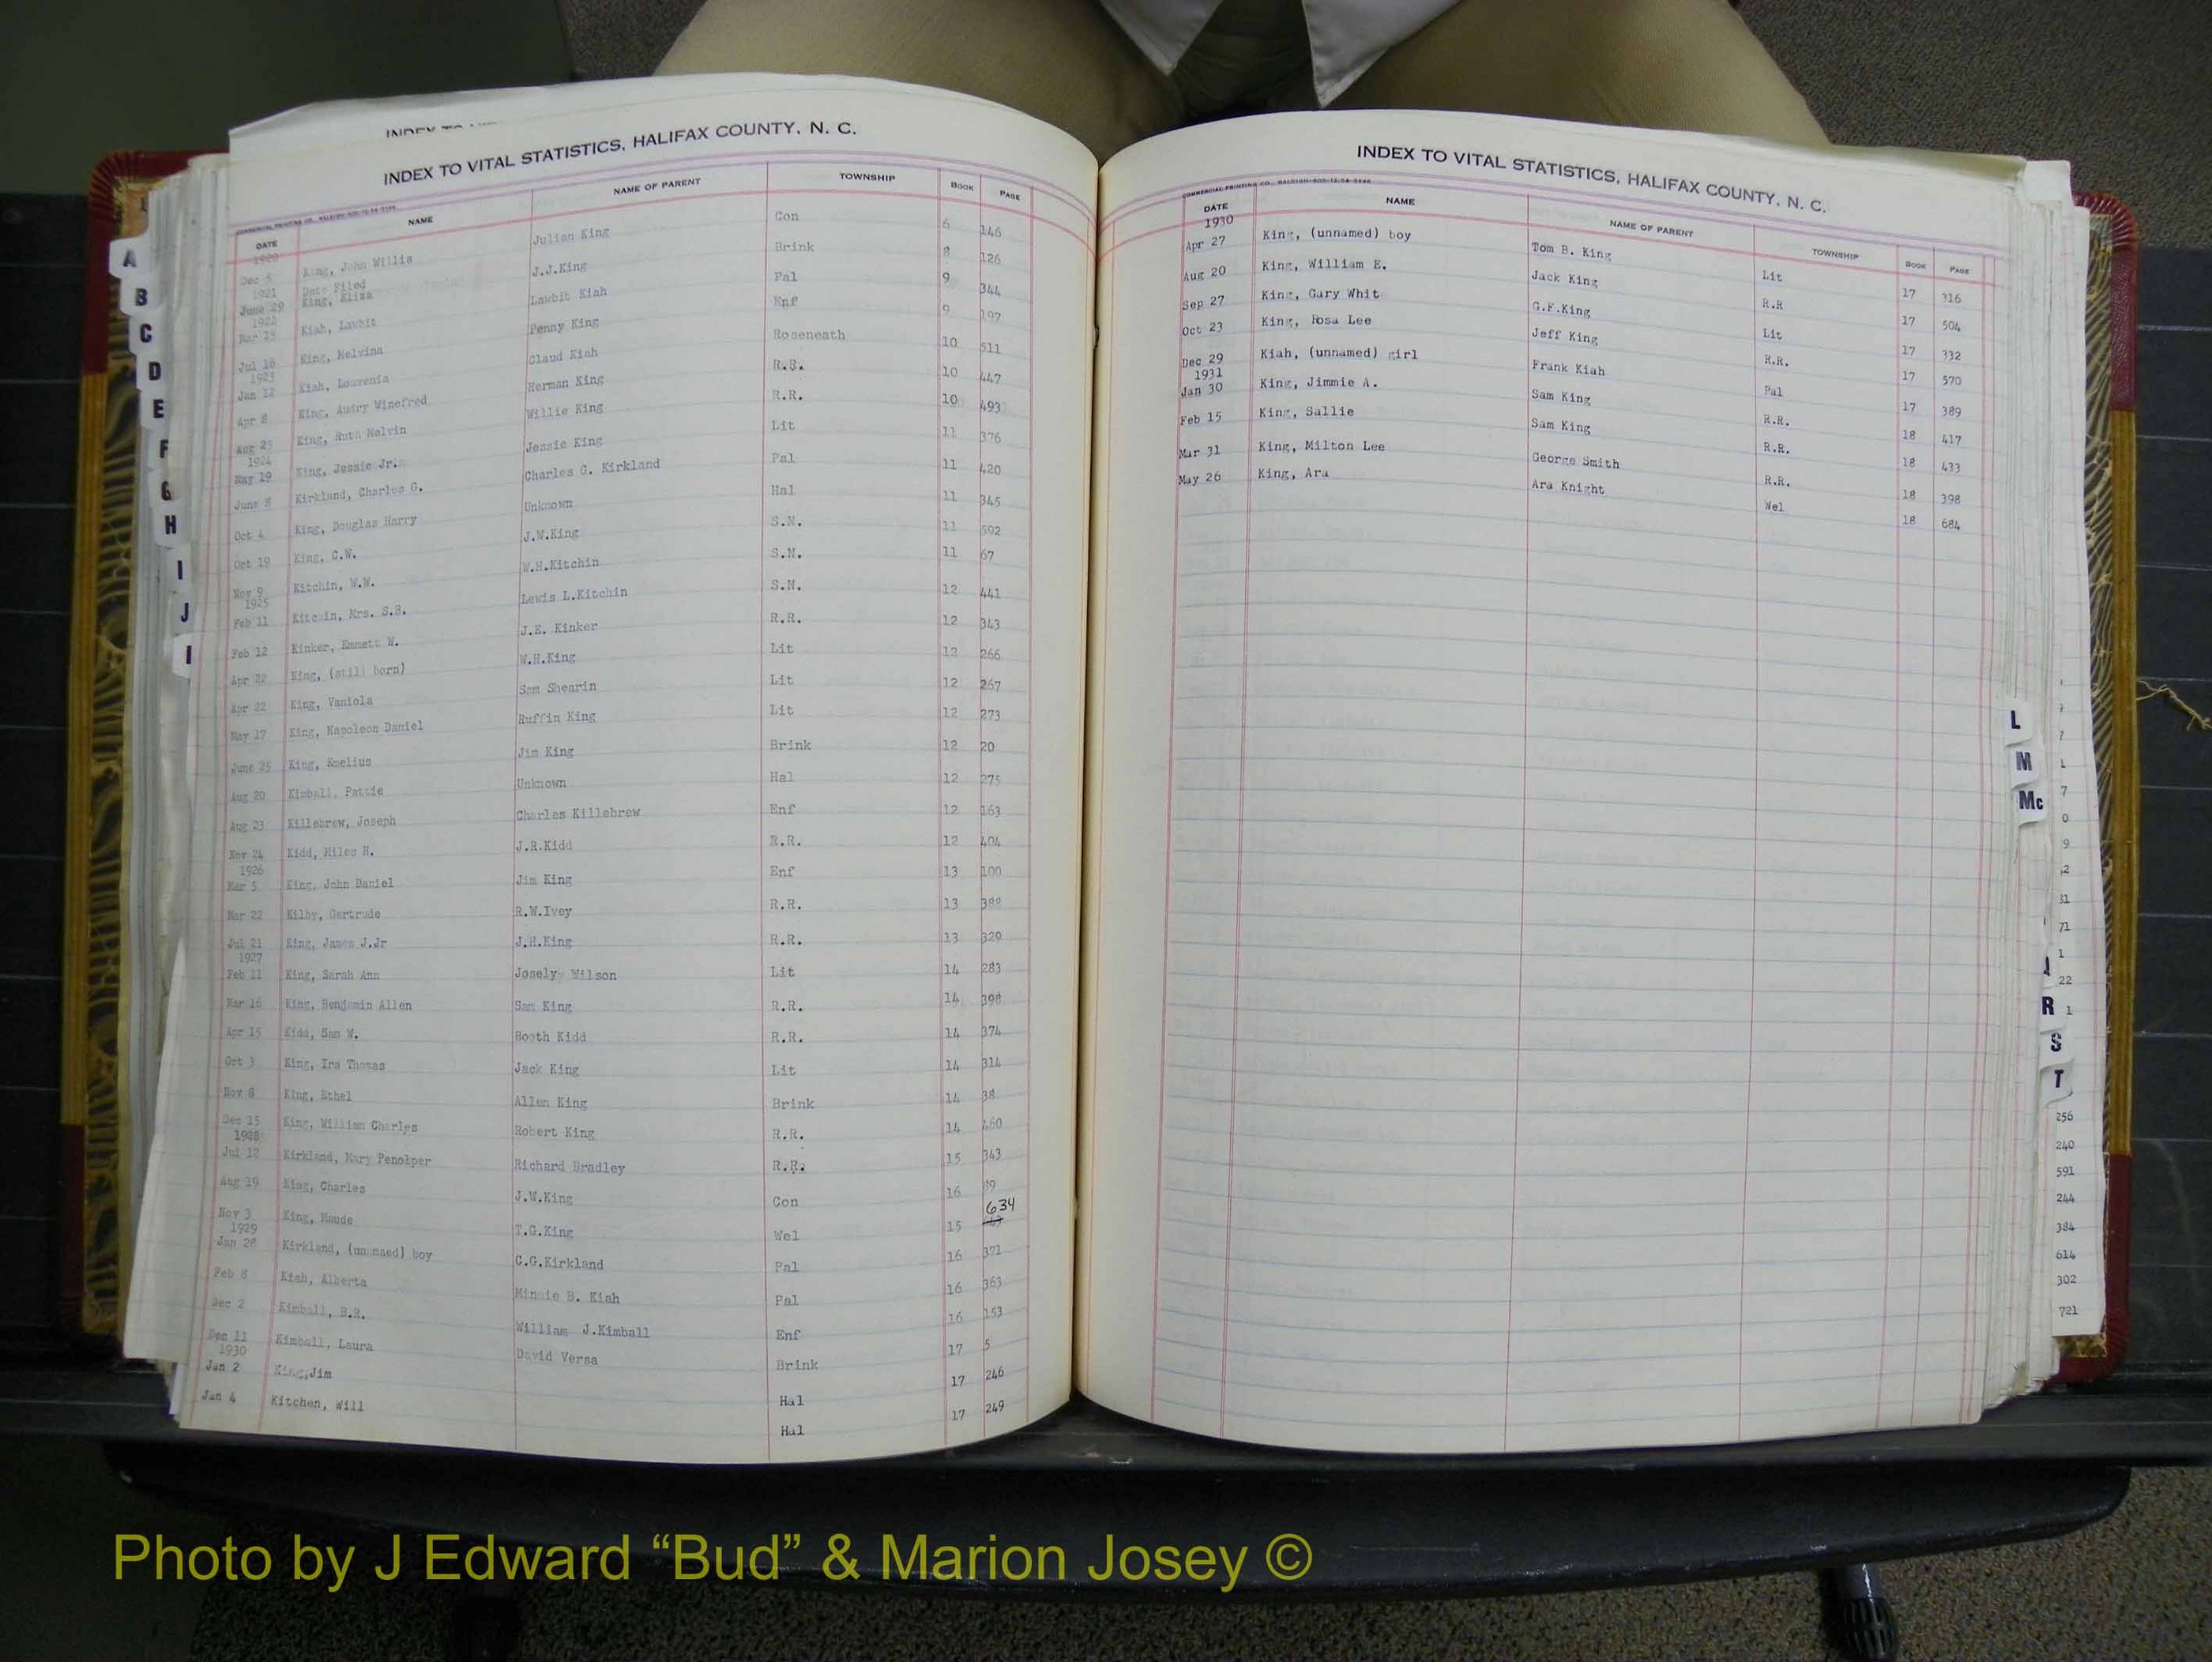 INDEX TO VITAL STATISTICS, HALIFAX COUNTY, N. C.
DATE NAME NAME OF PARENT TOWNSHIP BOOK PAGE
1920
Dec 5 King, John Willis Julian King Con 6 146
1921 Date Filed
June 29 King, Eliza J.J.King Brink 8 126
1922
Mar 15 Kiah, Lawbit Lawbit Kiah Pal 9 344
Jul 16 King, Melvina Penny King Enf 9 197
1923
Jan 12 Kiah, Louvenia Claud Kiah Roseneath 10 511
Apr 8 King, Audry Winefred Herman King R.R. 10 447
Aug 25 King, Ruth Melvin Willie King R.R. 10 493
1924
May 19 King, Jessie Jr. Jessie King Lit 11 376
June 8 Kirkland, Charles G. Charles G. Kirkland Pal 11 420
Oct 4 King, Douglas Harry Unknown Hal 11 345
Oct 19 King, C.W. J.W.King S.N. 11 592
Nov 9 Kitchin, W.W. W.H.Kitchin S.N. 11 67
1925
Feb 11 Kitchin, Mrs. S.B. Lewis L.Kitchin S.N. 12 441
Feb 12 Kinker, Emmett W. J.E. Kinker R.R. 12 343
Apr 22 King, (still born) W.H.King Lit 12 266
Apr 22 King, Vaniola Sam Shearin Lit 12 267
May 17 King, Napoleon Daniel Ruffin King Lit 12 273
June 25 King, Emelius Jim King Brink 12 20
Aug 20 Kimball, Pattie Unknown Hal 12 275
Aug 23 Killebrew, Joseph Charles Killebrew Enf 12 163
Nov 24 Kidd, Miles H. J.R.Kidd R.R. 12 404
1926
Mar 5 King, John Daniel Jim King Enf 13 100
Mar 22 Kilby, Gertrude R.W.Ivey R.R. 13 388
Jul 21 King, James J.Jr J.H.King R.R. 13 329
1927
Feb 11 King, Sarah Ann Josely Wilson Lit 14 283
Mar 16 King, Benjamin Allen Sam King R.R. 14 398
Apr 15 Kidd, Sam W. Booth Kidd R.R. 14 374
Oct 3 King, Ira Thomas Jack King Lit 14 314
Nov 8 King, Ethel Allen King Brink 14 38
Dec 15 King, William Charles Robert King R.R. 14 460
1928
Jul 12 Kirkland, Mary Penolper Richard Bradley R.R. 15 343
Aug 19 King, Charles J.W.King Con 16 89
Nov 3 King, Maude T.G.King Wel 15 634
1929
Jan 28 Kirkland, (unnamed) boy C.G.Kirkland Pal 16 371
Feb 8 Kiah, Alberta Minnie B. Kiah Pal 16 363
Dec 2 Kimball, B.R. William J.Kimball Enf 16 153
Dec 11 Kimball, Laura David Versa Brink 17 5
1930
Jan 2 King,Jim Hal 17 246
Jan 4 Kitchen, Will Hal 17 249
A
B
C
D
E
F
G
H
I
J
INDEX TO VITAL STATISTICS, HALIFAX COUNTY, N. C.
DATE NAME NAME OF PARENT TOWNSHIP BOOK PAGE
1930
Apr 27 King, (unnamed) boy Tom B. King Lit 17 316
Aug 20 King, William E. Jack King R.R 17 504
Sep 27 King, Gary Whit G.F.King Lit 17 332
Oct 23 King, Rosa Lee Jeff King R.R. 17 570
Dec 29 Kiah, (unnamed) girl Frank Kiah Pal 17 389
1931
Jan 30 King, Jimmie A. Sam King R.R. 18 417
Feb 15 King, Sallie Sam King R.R. 18 433
Mar 31 King, Milton Lee George Smith R.R. 18 398
May 26 King, Ara Ara Knight Wel 18 684
L
M
Mc
R
S
T
256
240
591
244
384
614
302
721
Photo by J Edward “Bud” & Marion Josey ©